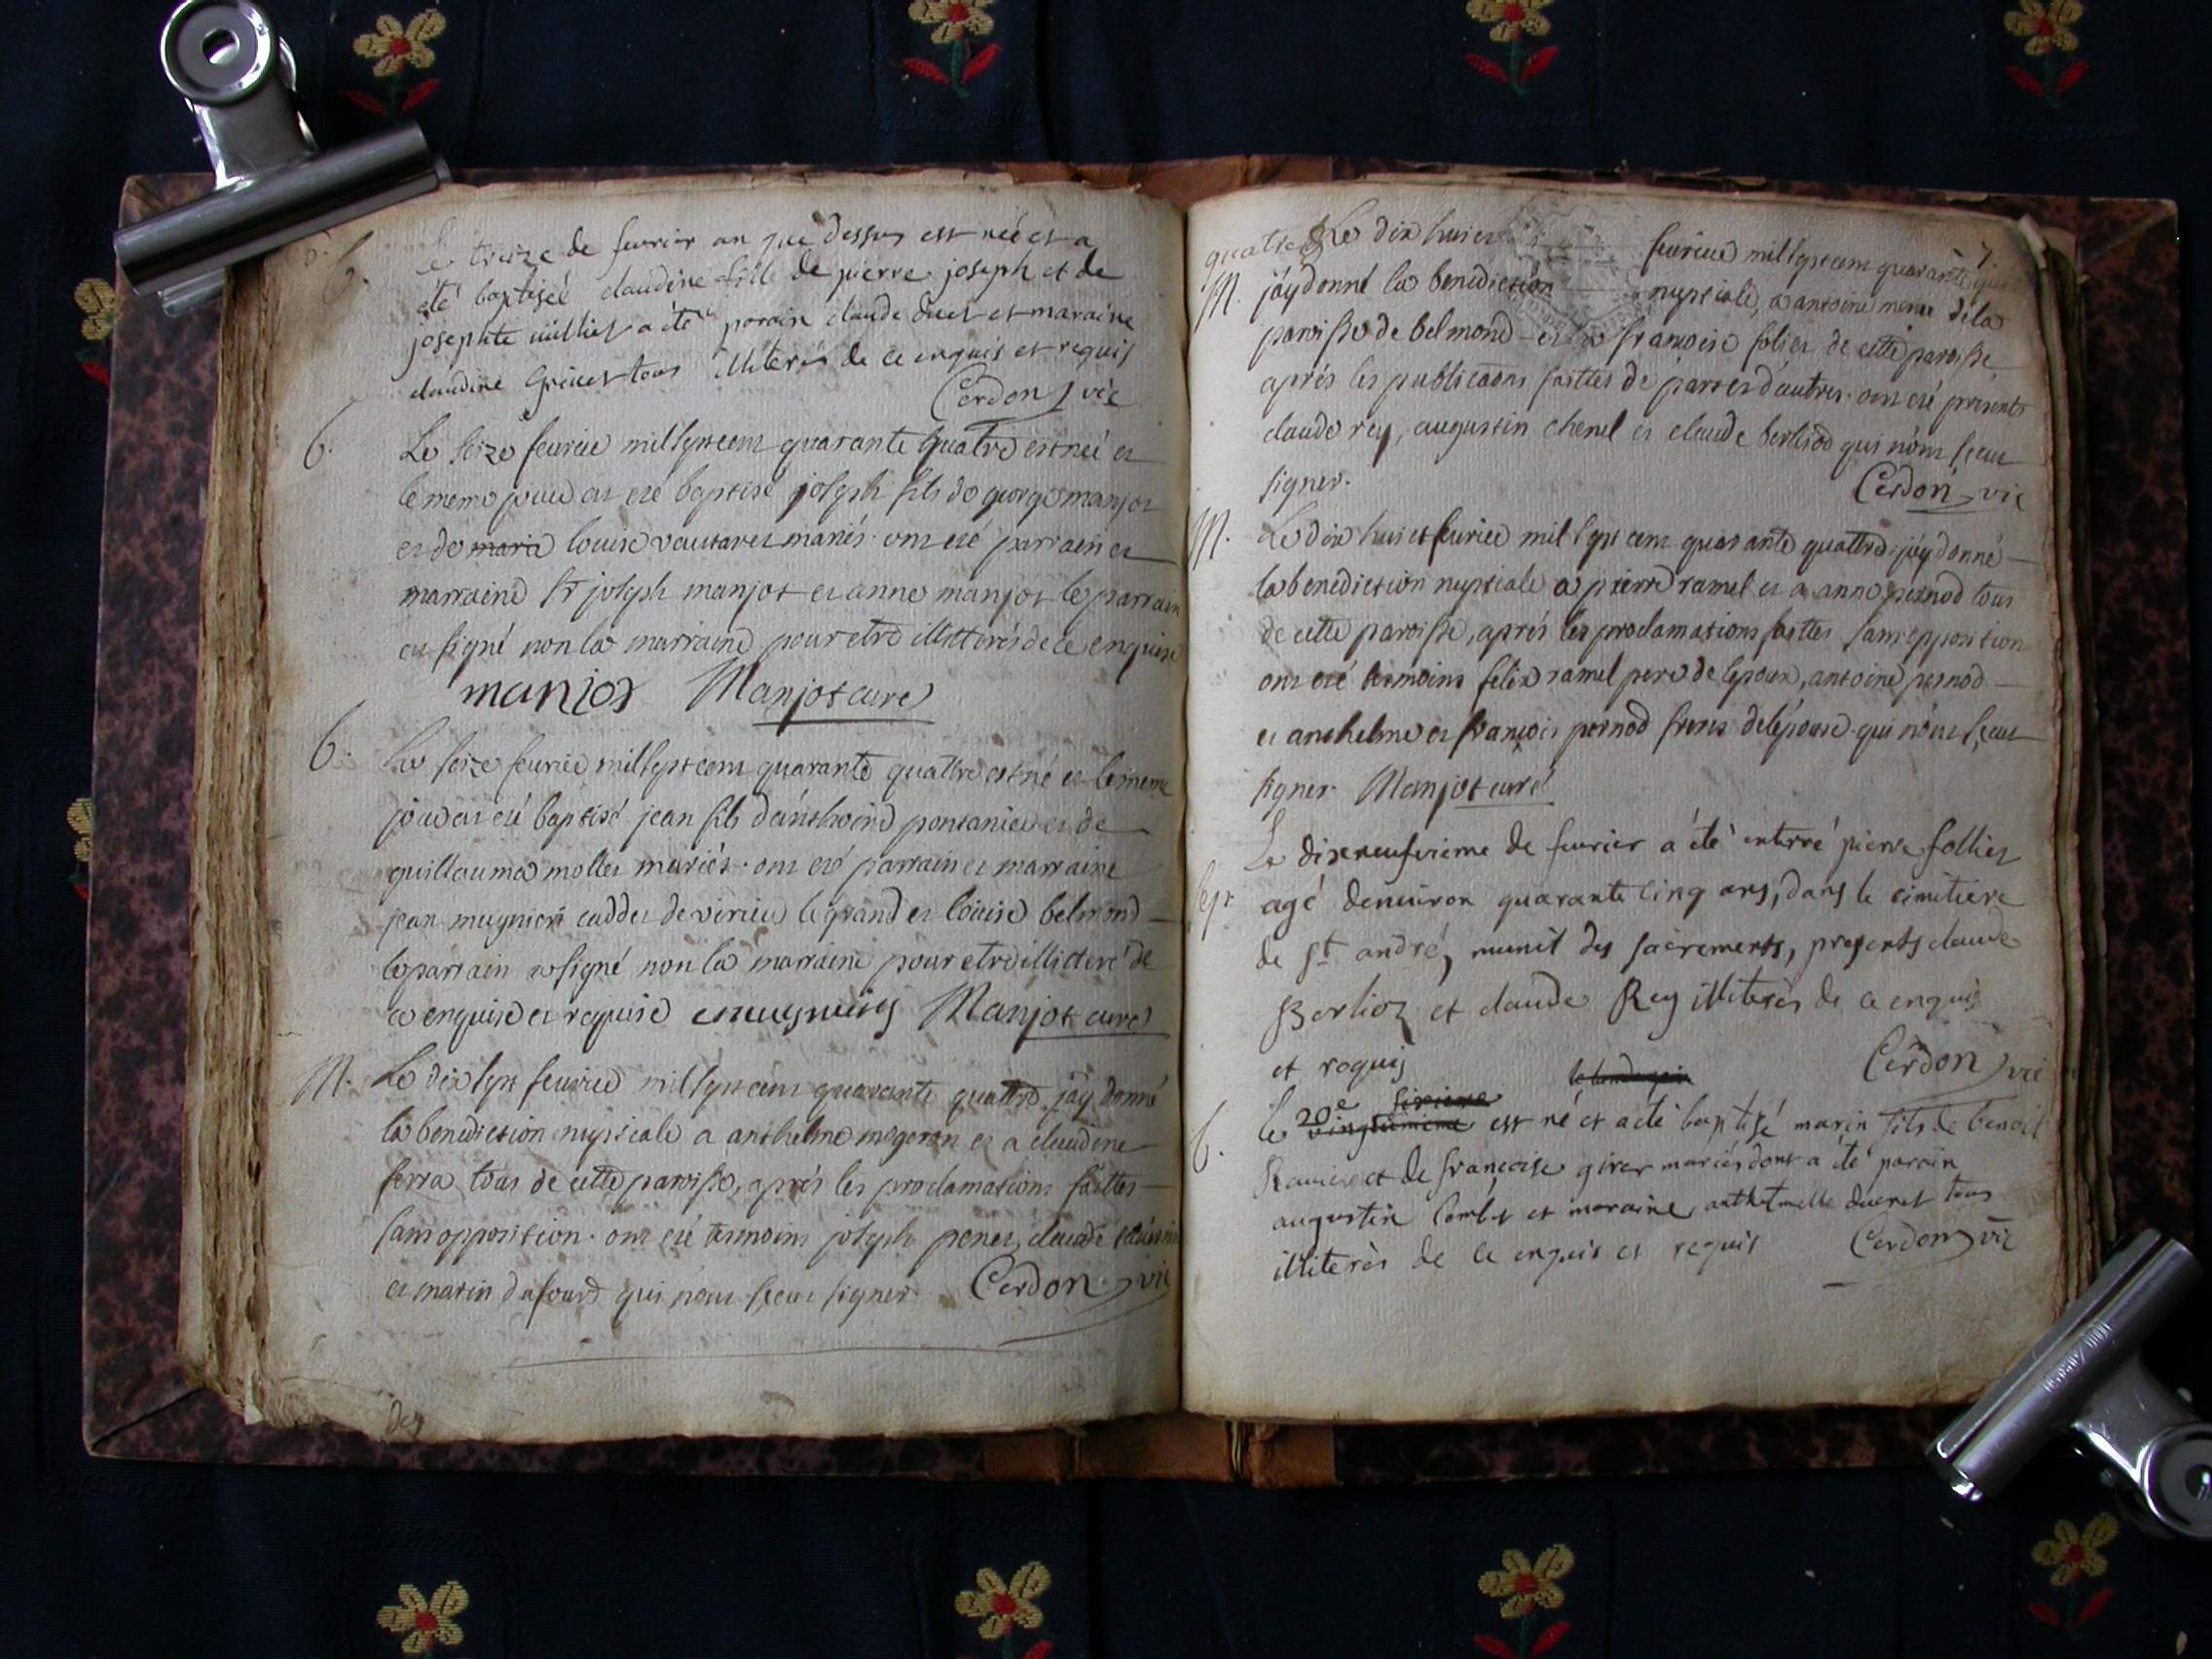 b.
le treize de feuvrier an que dessus est née et a
été baptiseé claudine fille de pierre joseph et de
josephte millies a été parain claude ducet et maraine
claudine tous illiterés de ce enquis et requis
Cerdon vic
b.
Le seize feuvrier mil sept cent quarante quatre est né et
le meme jour at eté baptisé joseph fils de george manjot
et de maria louise vautaret mariés. ont eté parrain et
marraine Sr joseph manjot et anne manjot le parrain
at signé non la marraine pour etre illitterés de ce enquise
manjot Manjot curé
b.
Le seize feuvrier mil sept cent quarante quattre est né et le meme
jour at eté baptisé jean fils d'anthoine pontanier et de
guillauma mollet mariés. ont eté parrain et marraine
jean mugnieri caddet de virieu le grand et louise belmond
le parrain a signé non la marraine pour etre illitteré de
ce enquise et requise Manjot curé
M.
Le dix sept feuvrier mil sept cent quarante quattre j'ay donné
la benediction nuptiale a anthelme mogeron et a claudine
ferra tous de cette paroisse, aprés les proclamations faittes
sans opposition. ont eté temoins joseph penet, claude
et marin dufour qui n'ont sceut signer Cerdon vic
des
quatre Le dix huict feuvrier mil sept cent quarante 7.
M. j'ay donné la benediction nuptiale, a antoine de la
paroisse de belmond et a francoise folier de cette paroisse
aprés les publicaons faittes de part et d'autres. ont eté presents
claude rey, augustin chenel et claude berliod qui n'ont sceut
signer. Cerdon vic
M.
Le dix huict feuvrier mil sept cent quarante quattre j'ay donné
la benediction nuptiale a pierre ramel et a anne pernod tous
de cette paroisse, aprés les proclamations faittes sans opposition
ont eté temoins felix ramel pere de lepoux, antoine pernod
et anthelme et francois pernod freres de lépouse qui n'ont sceut
signer Manjot curé
Le dixneufvieme de feuvrier a été enterré pierre follier
sept. agé denviron quarante cinq ans, dans le cimitiere
de st andré, munit des sacrements, presents claude
Berlioz et claude Rey illiterés de ce enquis
et requis Cerdon vic
b.
le 20e est né et a été baptisé marin fils de benoit
et de françoise giret mariés dont a été parain
augustin Combet et maraine anthelmette ducret tous
illiterés de ce enquis et requis Cerdon vic